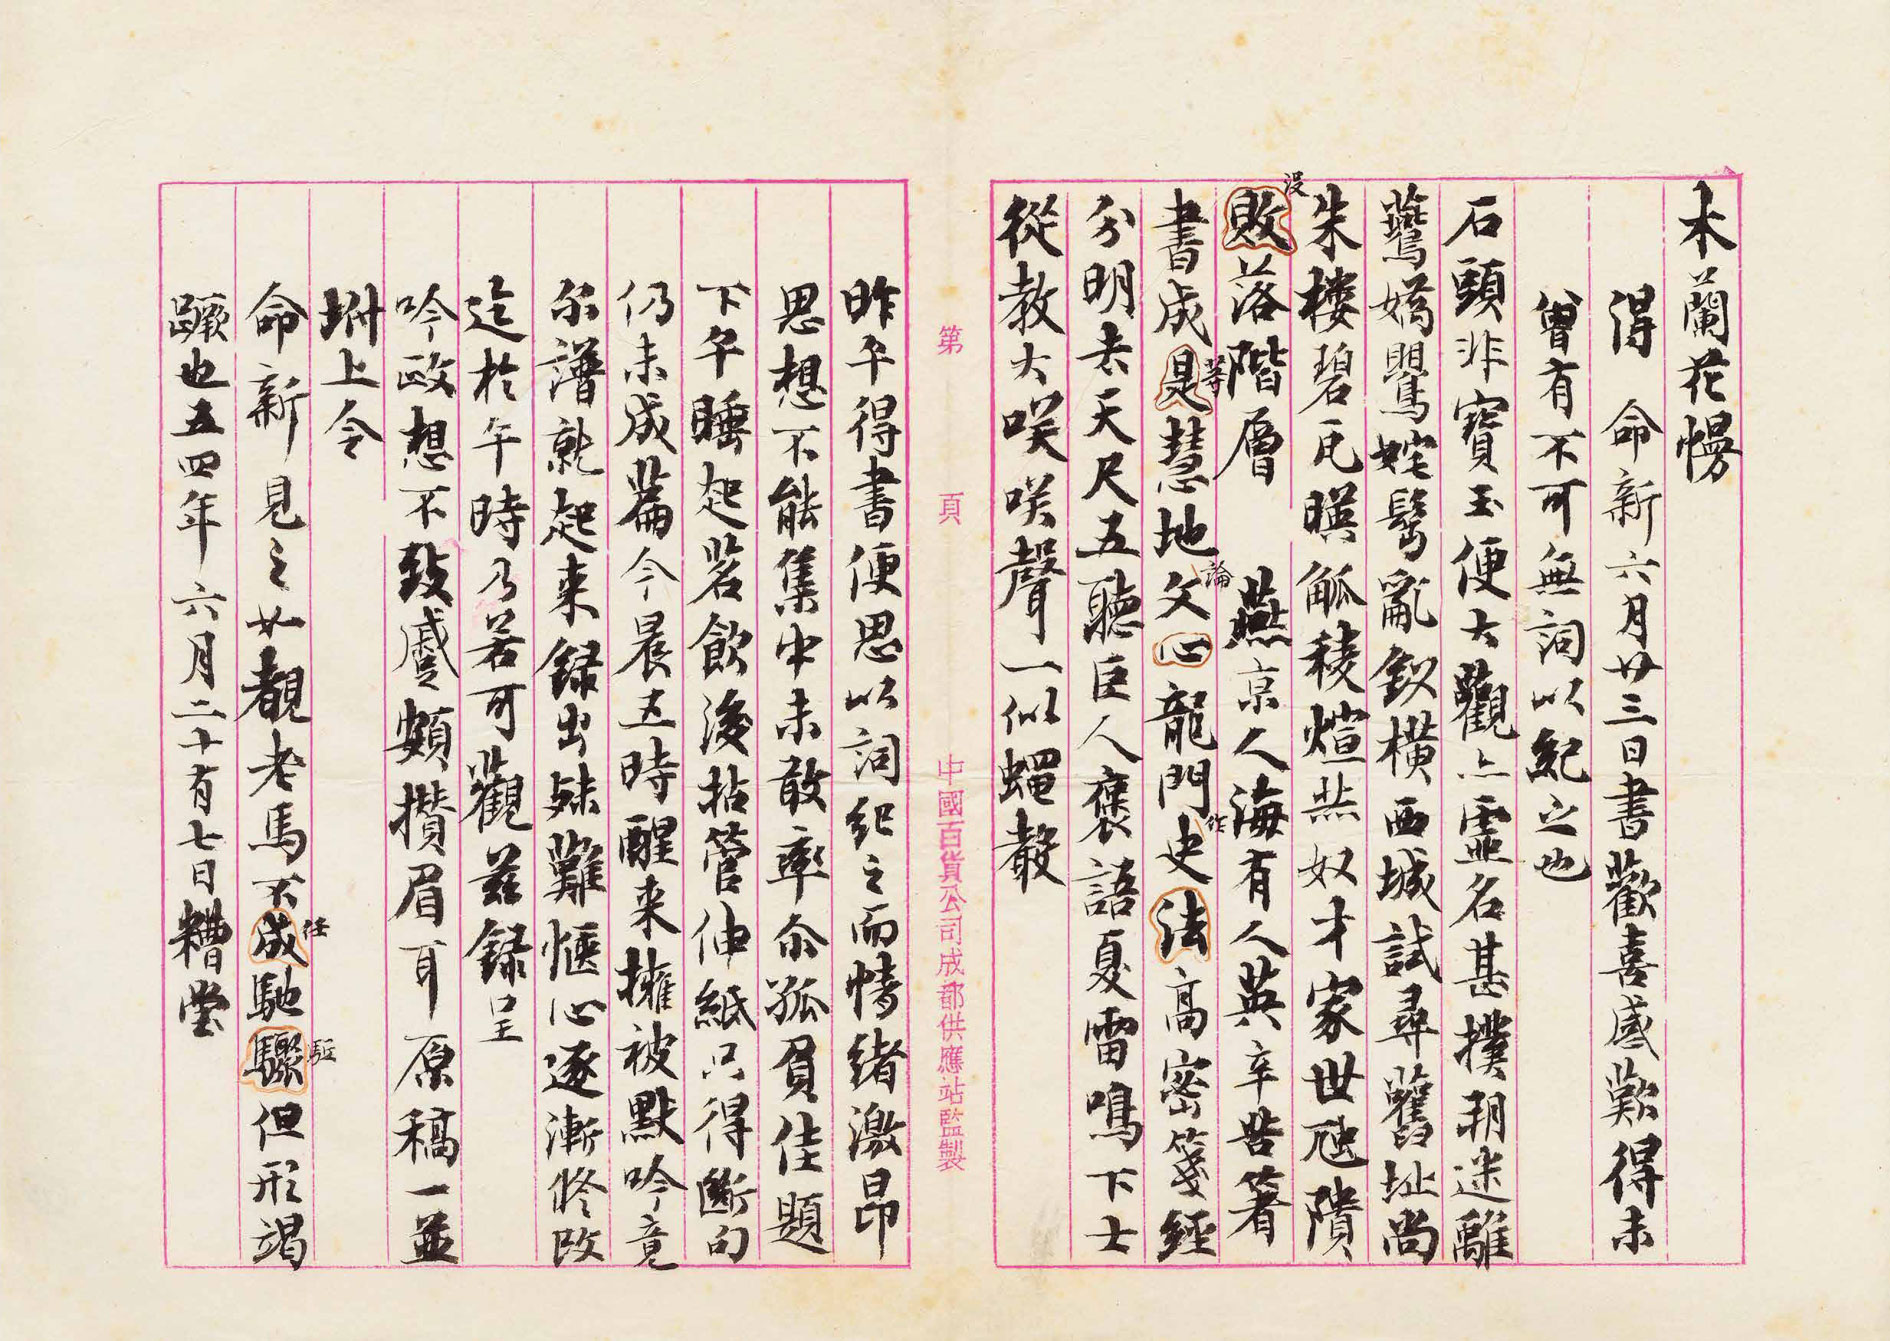 木蘭花慢
得命新六月廿三日書歡喜感歎得未
曾有不可無詞以紀之也
石頭非寶玉便大觀亦虛名甚撲朔迷離
鶯嬌鸚姹鬢亂釵橫西城試尋舊址尚
朱樓碧瓦暎觚稜煊赫奴才家世虺隤
敗落階層　燕京人海有人英辛苦著
没
書成是慧地文心龍門史法高密箋經
等
論
作
分明去天尺五聽巨人褒語夏雷鳴下士
從教大咲咲聲一似蠅聲
第　頁
中國百貨公司成都供應站監製
昨午得書便思以詞紀之而情緒激昂
思想不能集中未敢率尔孤負佳題
下午睡起茗飲後拈管伸紙只得斷句
仍未成篇今晨五時醒来擁被默吟竟
尔譜就起来録出殊難愜心逐漸修改
迄於午時乃若可觀茲録呈
吟政想不致蹙頞攢眉耳原稿一並
坿上令
命新見之廿覩老馬不成馳驟但形竭
任
駈
蹶也五四年六月二十有七日糟堂